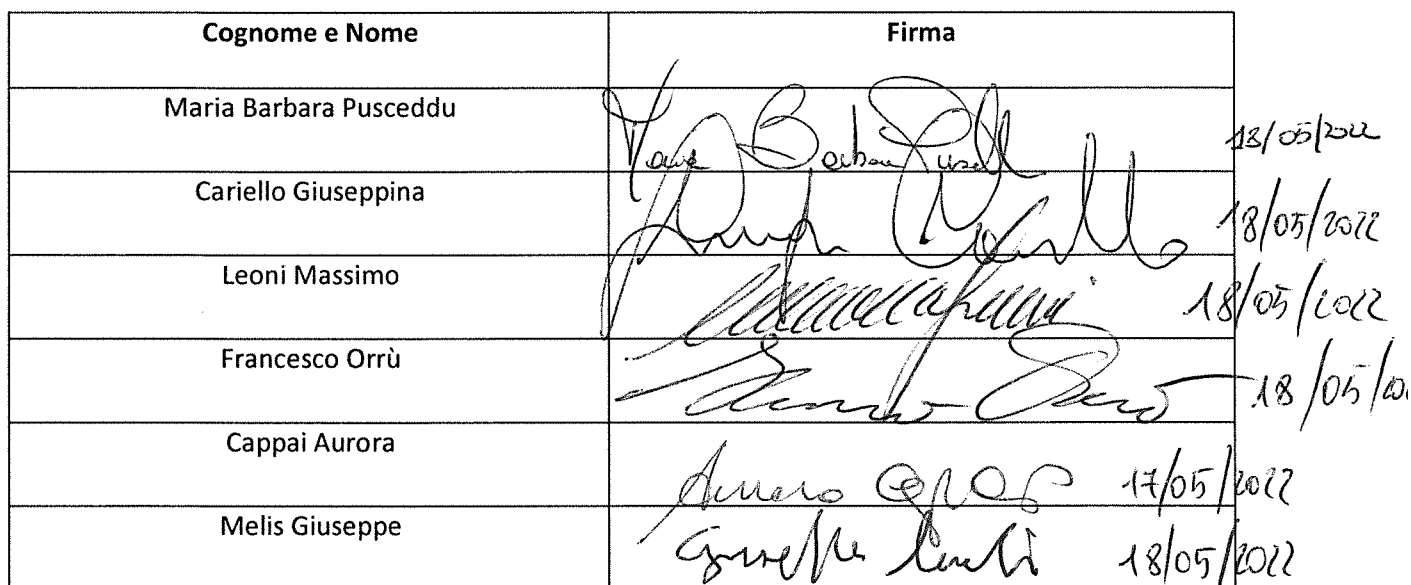 Cognome e Nome Firma
Maria Barbara Pusceddu Maria Barbara Pusceddu 18/05/2022
Cariello Giuseppina 18/05/2022
Leoni Massimo 18/05/2022
Francesco Orrù Francesco Orrù 18/05/20
Cappai Aurora Aurora Cappai 17/05/2022
Melis Giuseppe Giuseppe Melis 18/05/2022